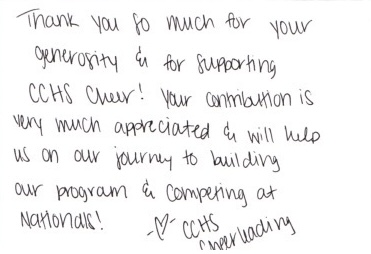 Thank you so much for your
generosity & for supporting
CCHS Cheer! Your contribution is
very much appreciated & will help
us on our journey to building
our program & competing at
Nationals!
-♡- CCHS
Cheerleading